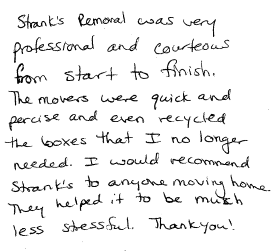 Strank's Removal was very
professional and courteous
from start to finish.
The movers were quick and
percise and even recycled
the boxes that I no longer
needed. I would recommend
Strank's to anyone moving home.
They helped it to be much
less stressful. Thankyou!